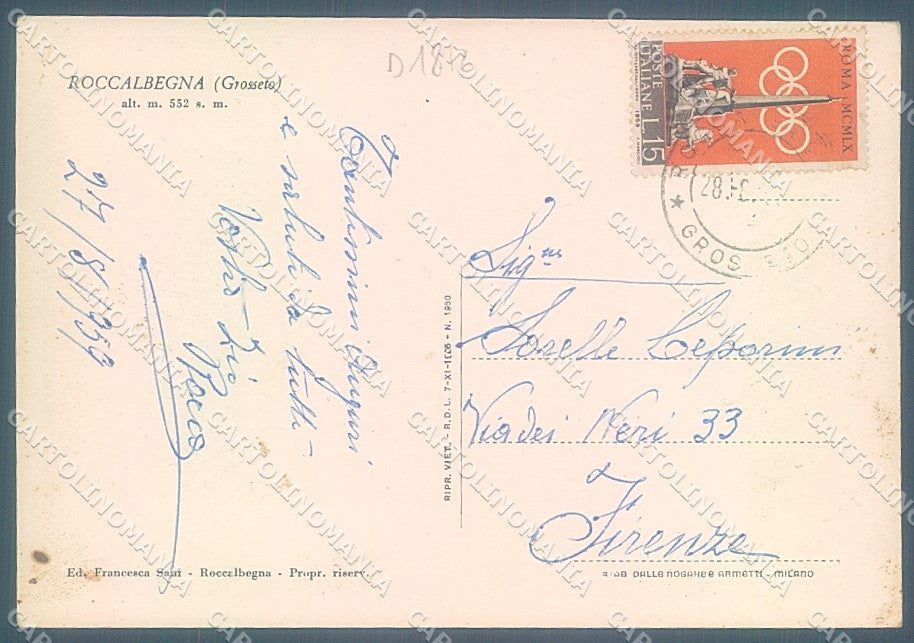 D182
ROCCALBEGNA (Grosseto)
alt. m. 552 s. m.
Tantissimi Auguri
e saluti da tutti -
Vostro Zio
Rocco
27/8/959
POSTE
ITALIANE L. 15
ROMA MCMLX
28.
GROSSETO
Sig.ne
Sorelle Ceporini
Via dei Neri 33
Firenze
RIPR. VIET. - R.D.L. 7-XI-1926 - N. 1950
Ed. Francesca Sani - Roccalbegna - Propr. riserv.
DALLE NOGARE E ARMETTI - MILANO
CARTOLINOMANIA